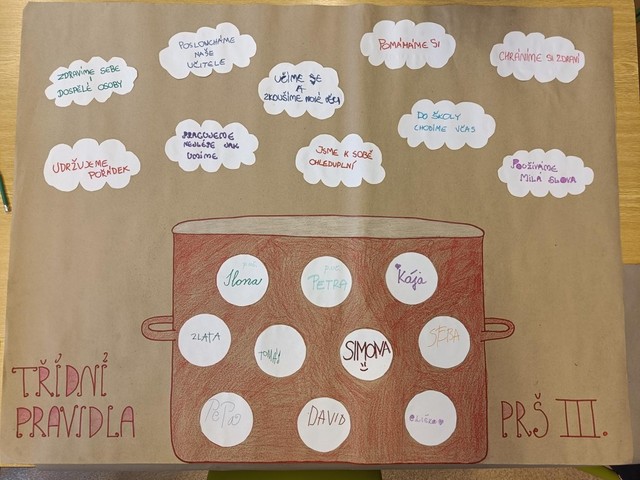 ZDRAVÍME SEBE
DOSPĚLÉ OSOBY
POSLOUCHÁME
NAŠE
UČITELE
UČÍME SE
A
ZKOUŠÍME NOVÉ VĚCI
POMÁHÁME SI
CHRÁNÍME SI ZDRAVÍ
UDRŽUJEME
POŘÁDEK
PRACUJEME
NEJLÉPE JAK
UMÍME
JSME K SOBĚ
OHLEDUPLNÍ
DO ŠKOLY
CHODÍME VČAS
POUŽÍVÁME
MILÁ SLOVA
Ilona
PETRA
Kája
ZLATA
TOMÁŠ
SIMONA
SÉBA
PEPÍO
DAVID
TŘÍDNÍ
PRAVIDLA
PRŠ III.